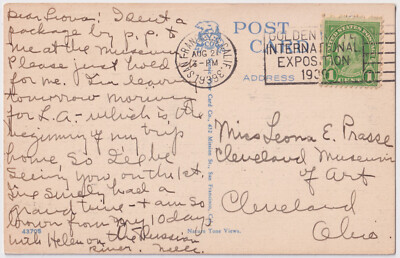 Dear Leona! I sent a
package by p.p. to
me at the Museum
Please just hold
for me. I'm leaving
tomorrow morning
for L.A. - which is the
beginning of my trip
home. So I'll be
seeing you, on the 1st.
I've surely had a
grand time - + am so
brown from my 10 days
with Helen on the Russian
River.
43708
POST
CARD
ADDRESS
SAN FRANCISCO, CALIF.
AUG 2
PM
GOLDEN
INTERNATIONAL
EXPOSITION
193
1
1
Miss Leona E. Prasse
Cleveland Museum
of Art
Cleveland
Ohio.
Card Co., 412 Mission St., San Francisco, Cal.
Nature Tone Views.